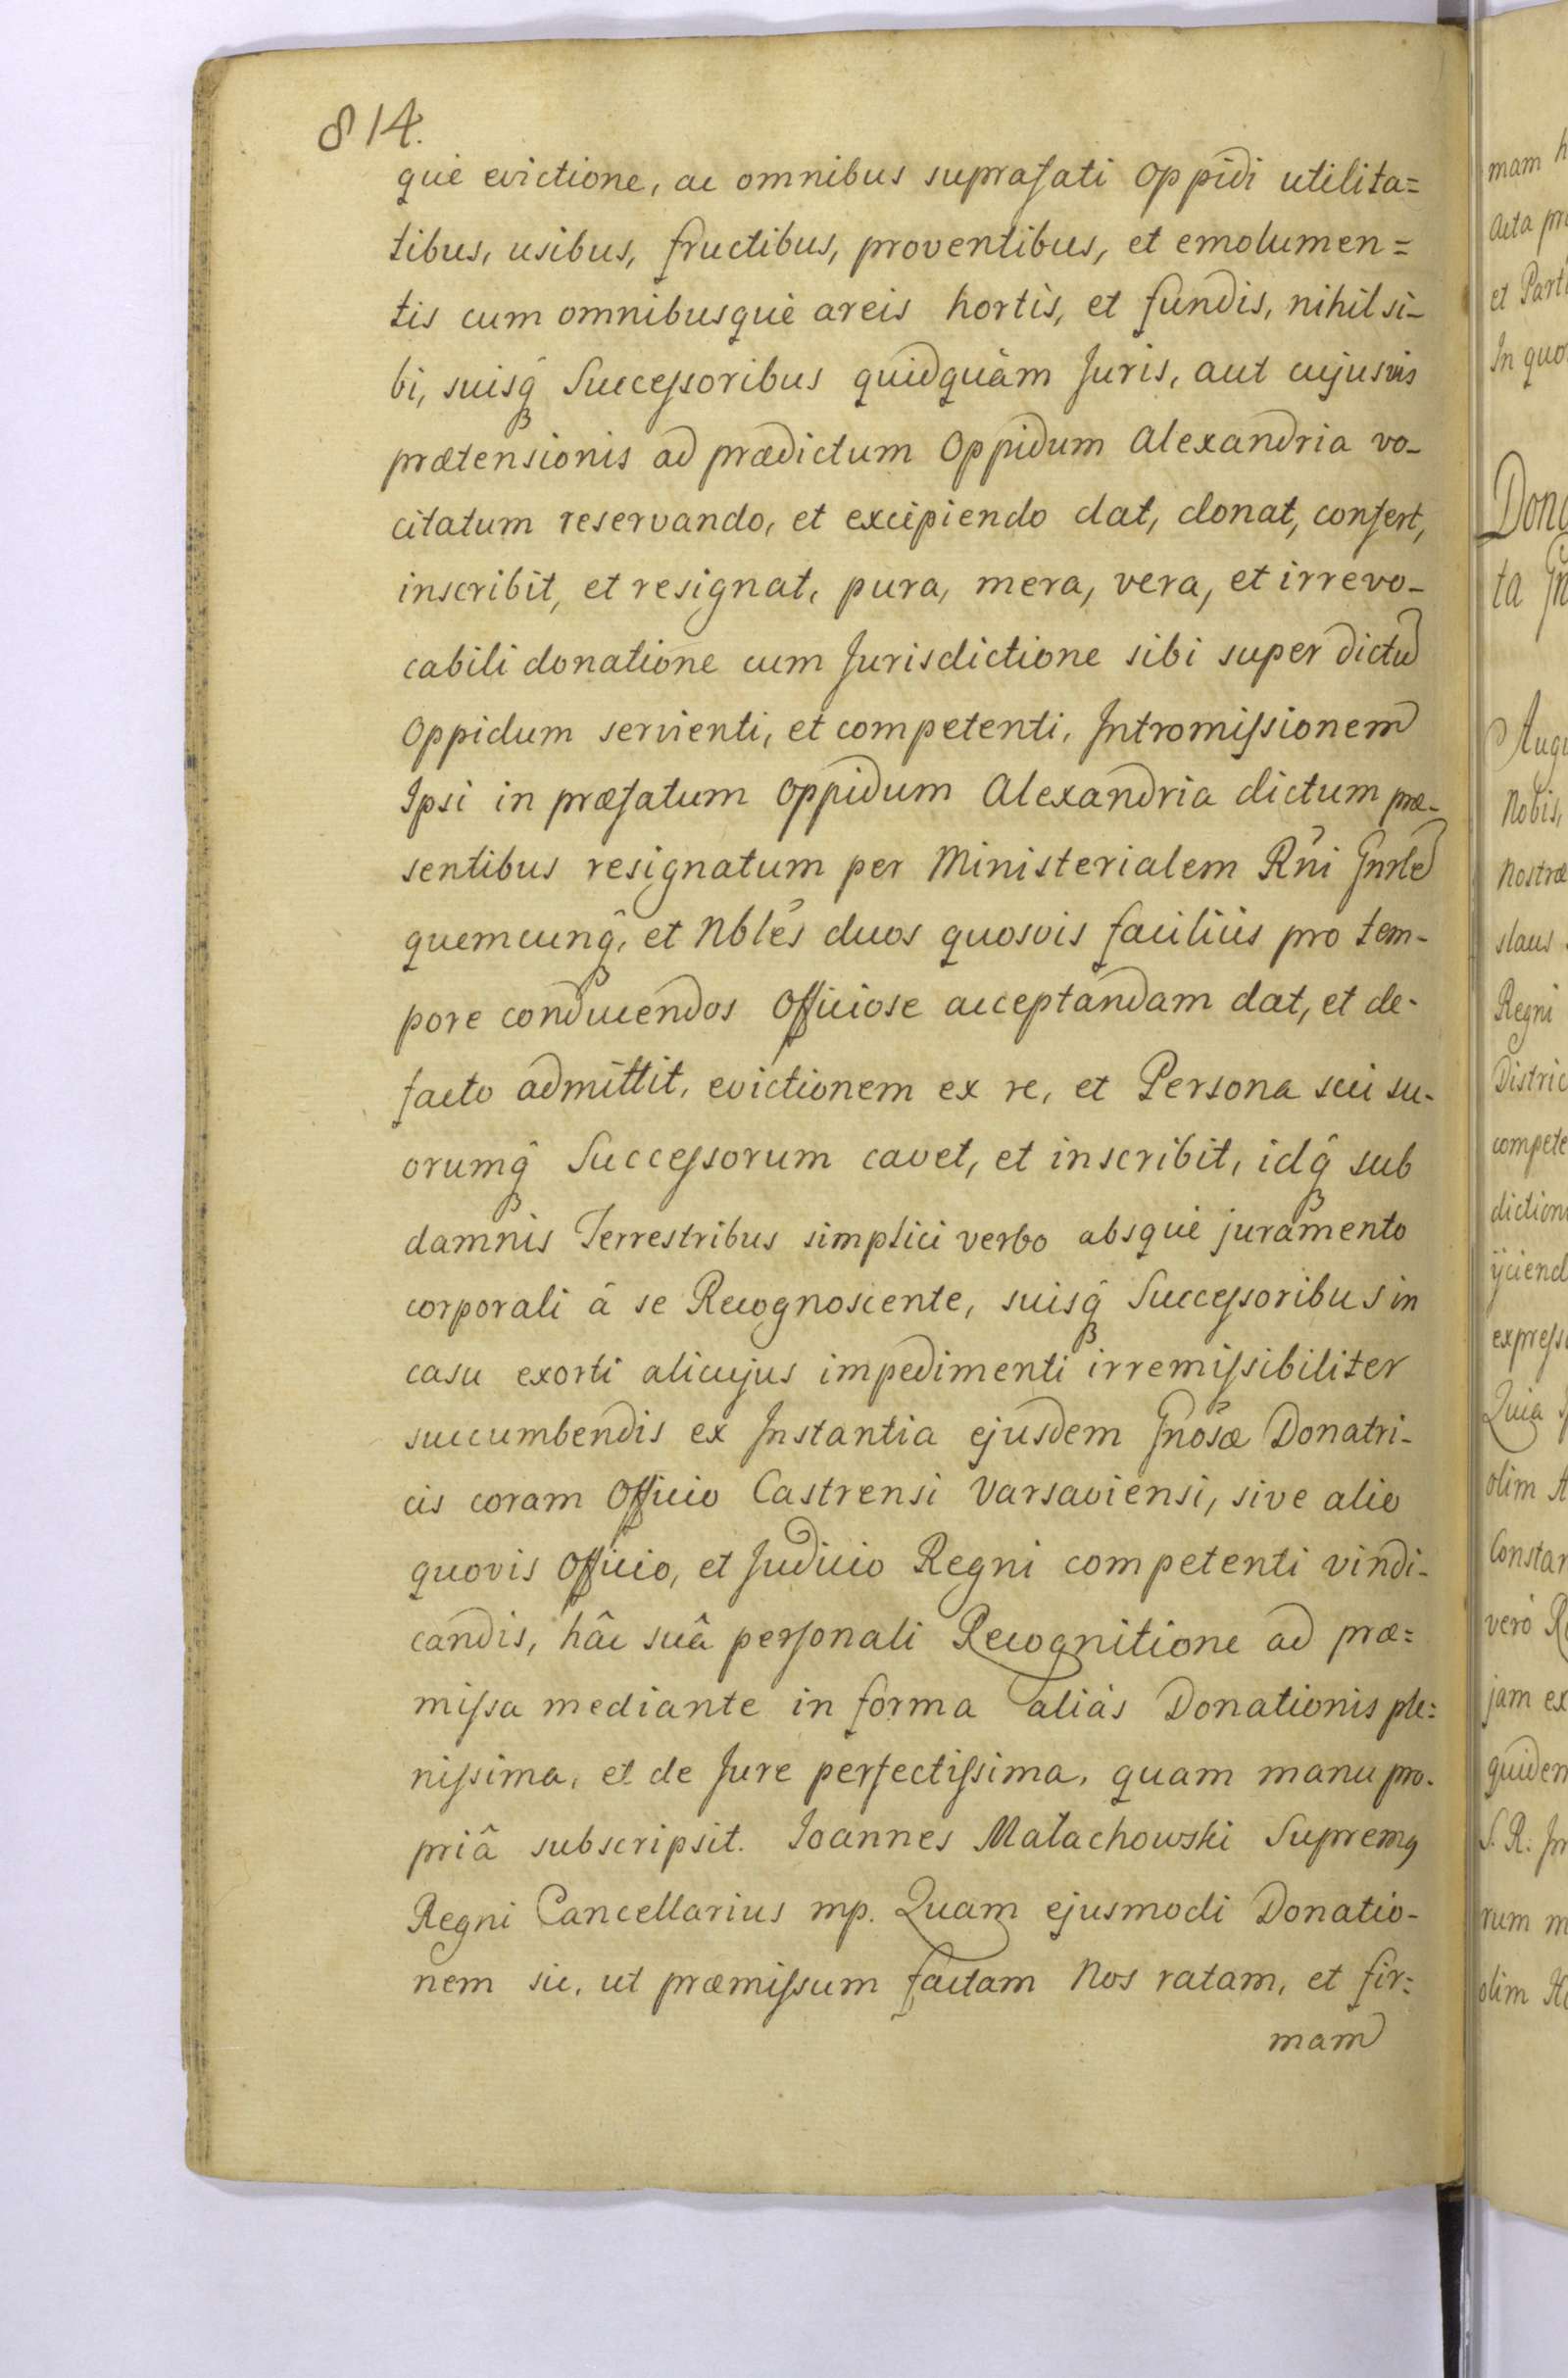 814.
que evictione, ac omnibus suprafati Oppidi utilita=
tibus, usibus, fructibus, proventibus, et emolumen=
tis cum omnibusque areis hortis, et fundis, nihil si-
bi, suisq̂ Successoribus quidquàm Juris, aut cujusvis
prætensionis ad prædictum Oppidum Alexandria vo-
citatum reservando, et excipiendo dat, donat, confert,
inscribit, et resignat, pura, mera, vera, et irrevo-
cabili donatione cum Jurisdictione sibi super dictū
Oppidum servienti, et competenti, Intromissionem
Ipsi in præfatum Oppidum Alexandria dictum præ-
sentibus resignatum per Ministerialem Rñi Gnrlē
quemcunq̂, et Nbles duos quosvis faciliùs pro tem-
pore conducendos Officiose acceptandam dat, et de-
facto admittit, evictionem ex re, et Persona sui su-
orumq̂ Successorum cavet, et inscribit, idq̂ sub
damnis Terrestribus simplici verbo absque juramento
corporali â se Recognoscente, suisq̂ Successoribus in
casu exorti alicujus impedimenti irremissibiliter
succumbendis ex Instantia ejusdem Gnosæ Donatri-
cis coram Officio Castrensi Varsaviensi, sive alio
quovis Officio, et Judicio Regni competenti vindi-
candis, hâc suâ personali Recognitione ad præ=
missa mediante in forma aliàs Donationis ple=
nissima, et de Jure perfectissima, quam manu pro-
priâ subscripsit. Joannes Małachowski Supremꝰ
Regni Cancellarius mp. Quam ejusmodi Donatio-
nem sic, ut præmissum factam Nos ratam, et fir=
mam
mam
Acta
et
In quo
ta
Nobis,
Nostræ
slaus
Regni
expressi
Quia
olim
vero
jam ex
S. R.
rum
olim